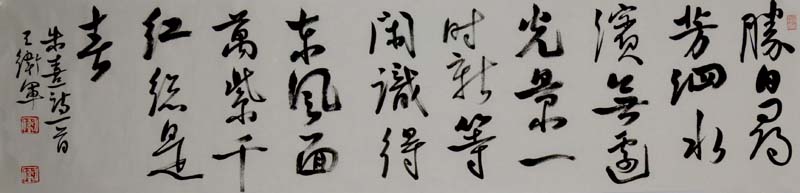 勝日尋
芳泗水
濱無邊
光景一
时新等
閑識得
东风面
萬紫千
紅總是
春
朱熹诗一首
王衛軍